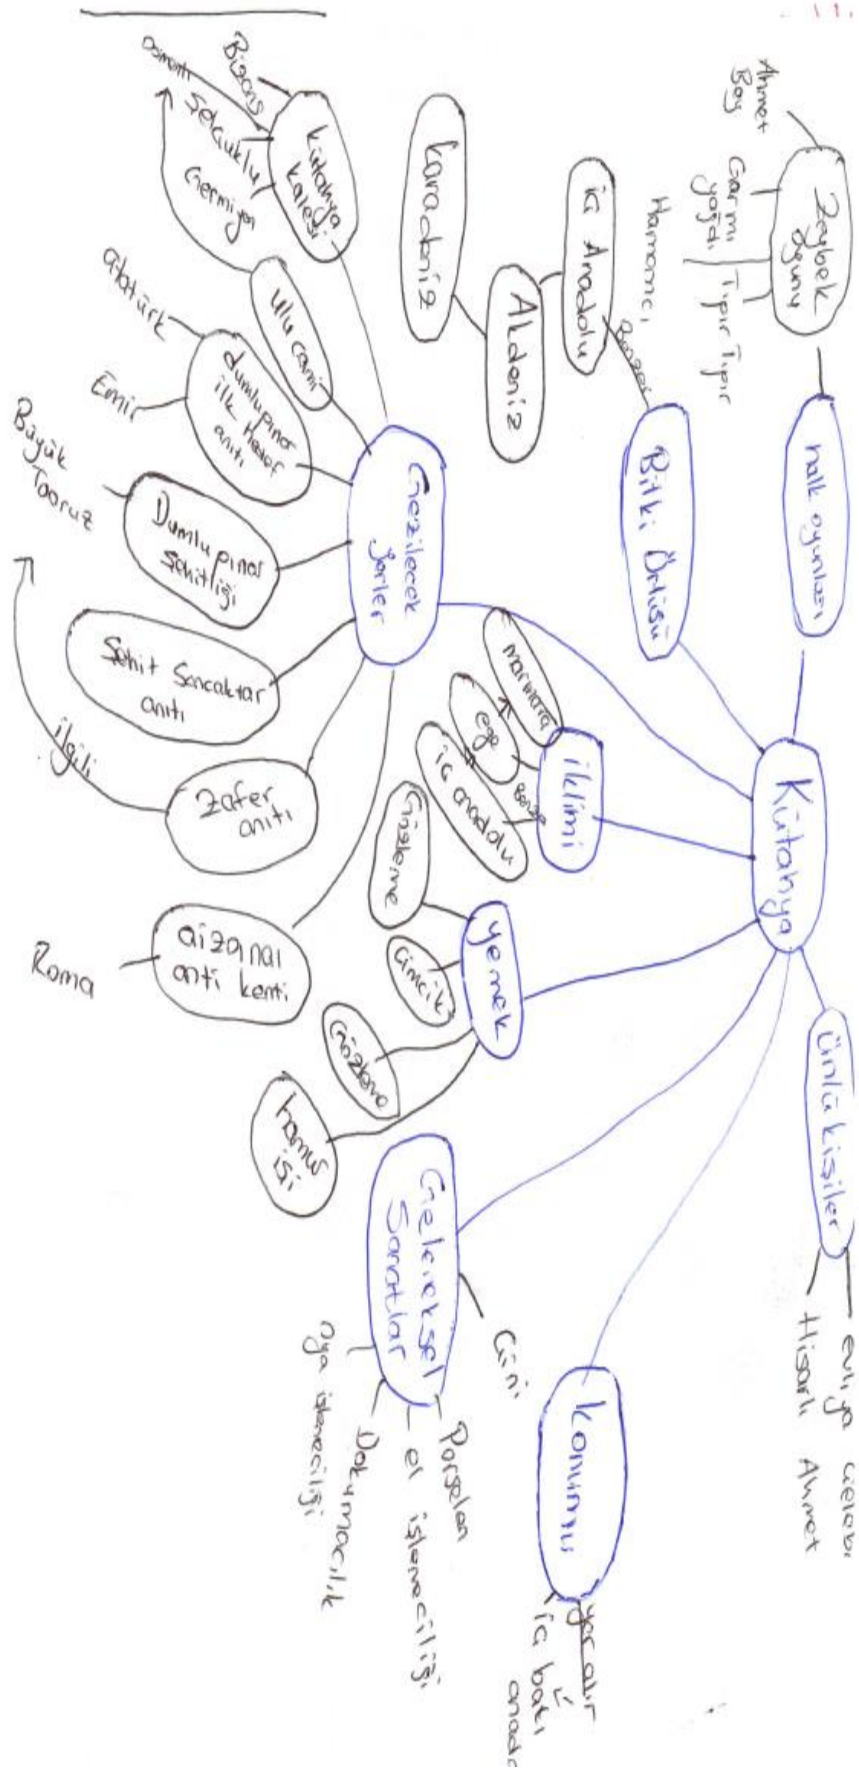 Kütahya
halk oyunları
Zeybek
oyunu
Ahmet
Bey
Garmı
yağdı
Tıpır Tıpır
Hamamcı
Bitki Örtüsü
Benzer
iç Anadolu
Akdeniz
karadeniz
Gezilecek
yerler
kütahya
kalesi
Bizans
osmanlı
Selçuklu
Germiyan
ulu cami
dumlupınar
ilk Hedef
anıtı
atatürk
Emir
Dumlupınar
şehitliği
Büyük
Taaruz
Şehit Sancaktar
anıtı
zafer
anıtı
ilgili
aizanai
anti kenti
Roma
iklimi
marmara
ege
iç anadolu
Benzer
yemek
Gözleme
Cimcik
Gözleme
hamur
işi
Geleneksel
Sanatlar
Çini
Porselen
el işlemeciliği
Dokumacılık
oya işlemeciliği
Konumu
yer alır
iç batı
anado
ünlü kişiler
evliya çelebi
Hisarlı Ahmet